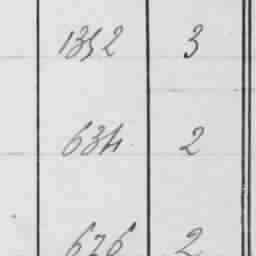 1352 3
634 2
626 2